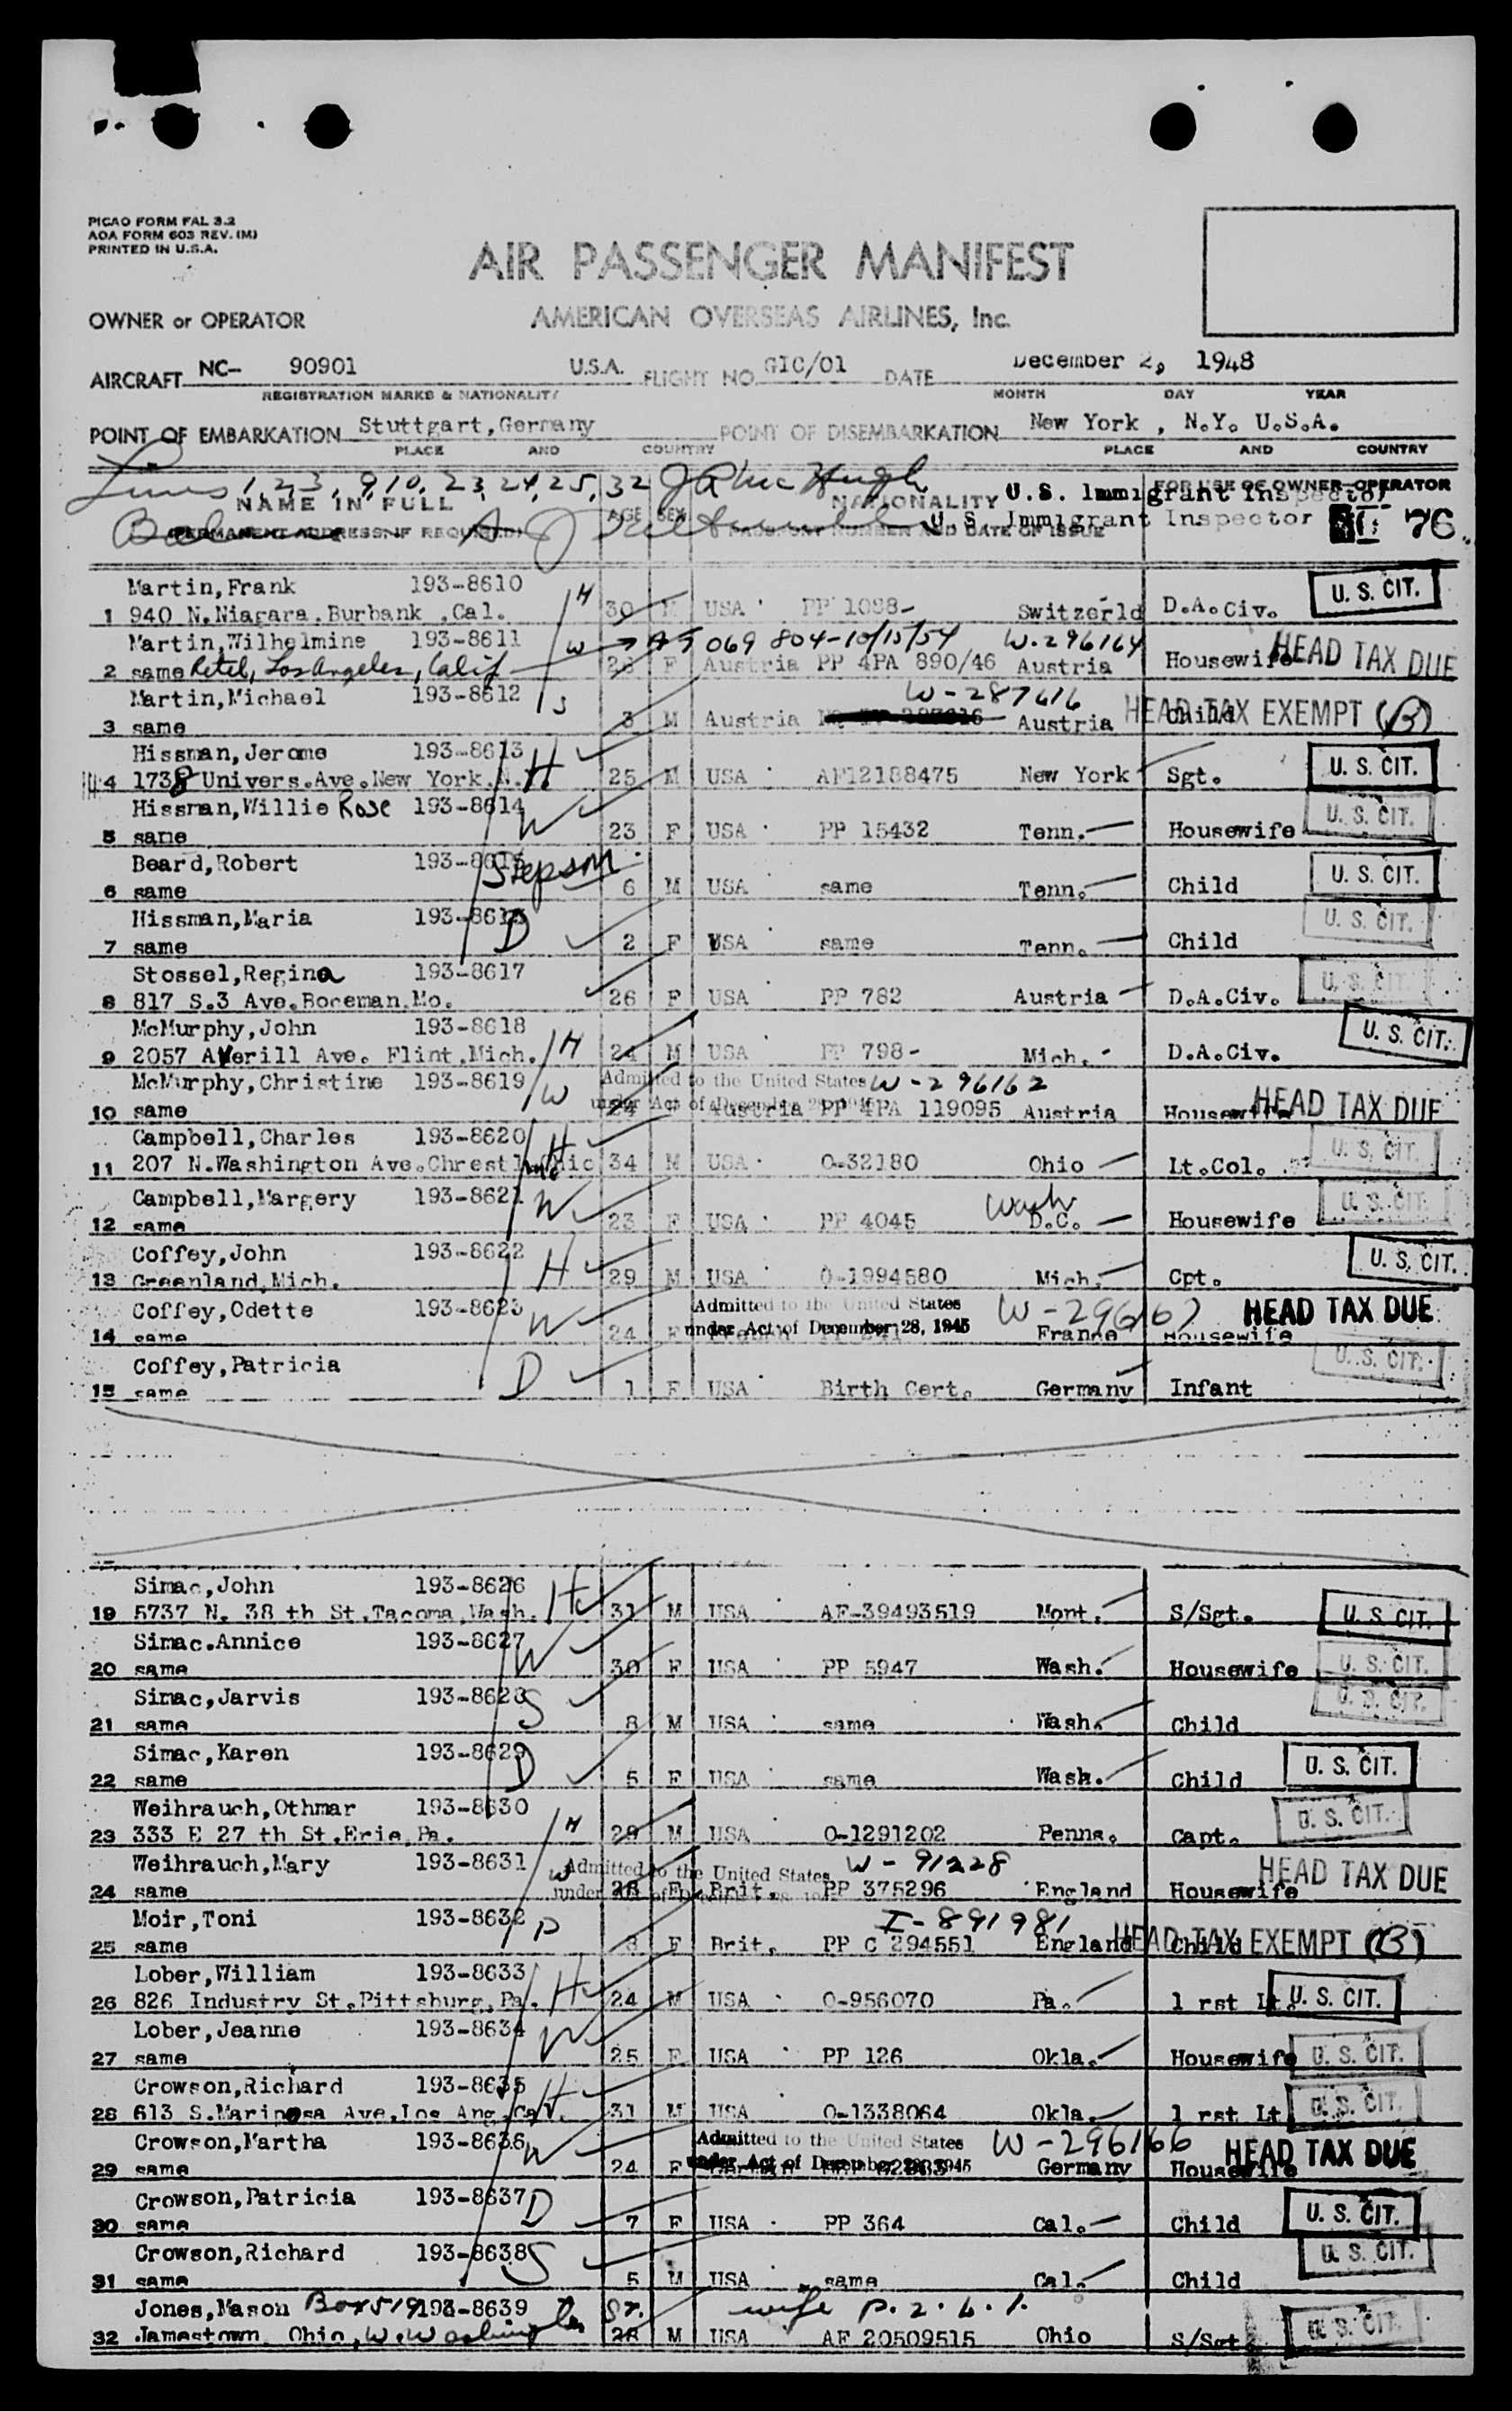 PICAO FORM FAL 3.2
AOA FORM 603 REV. (M)
PRINTED IN U.S.A.
AIR PASSENGER MANIFEST
OWNER or OPERATOR AMERICAN OVERSEAS AIRLINES, Inc.
AIRCRAFT NC- 90901 U.S.A. FLIGHT NO. GIC/01 DATE December 2, 1948
REGISTRATION MARKS & NATIONALITY MONTH DAY YEAR
POINT OF EMBARKATION Stuttgart, Germany POINT OF DISEMBARKATION New York , N.Y. U.S.A.
PLACE AND COUNTRY PLACE AND COUNTRY
Lines 1, 2, 3, 9, 10, 23, 24, 25, 32
NAME IN FULL NATIONALITY U.S. Immigrant Inspector FOR USE OF OWNER-OPERATOR
AGE SEX PASSPORT NUMBER AND DATE OF ISSUE U.S. Immigrant Inspector 76
Martin,Frank 193-8610 H U. S. CIT.
1 940 N.Niagara.Burbank ,Cal. 30 M USA PP 1088- Switzerld D.A.Civ.
Martin,Wilhelmine 193-8611 W 069 804-10/15/54 W-296164 HEAD TAX DUE
2 same Los Angeles, Calif 26 F Austria PP 4PA 890/46 Austria Housewife
Martin,Michael 193-8612 S W-287616 HEAD TAX EXEMPT (B)
3 same 3 M Austria Austria Child
Hissman,Jerome 193-8613 H U. S. CIT.
4 1738 Univers.Ave.New York.N.Y. 25 M USA AF12188475 New York Sgt.
Hissman,Willie Rose 193-8614 W U. S. CIT.
5 same 23 F USA PP 15432 Tenn. Housewife
Beard,Robert Stepson U. S. CIT.
6 same 6 M USA same Tenn. Child
Hissman,Maria D U. S. CIT.
7 same 2 F USA same Tenn. Child
Stossel,Regina 193-8617 U. S. CIT.
8 817 S.3 Ave.Boceman.Mo. 26 F USA PP 782 Austria D.A.Civ.
McMurphy,John 193-8618 H U. S. CIT.
9 2057 Averill Ave. Flint.Mich. 24 M USA PP 798- Mich. D.A.Civ.
McMurphy,Christine 193-8619 W Admitted to the United States W-296162 HEAD TAX DUE
10 same 24 F Austria PP 4PA 119095 Austria Housewife
Campbell,Charles 193-8620 H U. S. CIT.
11 207 N.Washington Ave. 34 M USA O-32180 Ohio Lt.Col.
Campbell,Margery 193-8621 W Wash U. S. CIT.
12 same 23 F USA PP 4045 D.C. Housewife
Coffey,John 193-8622 H U. S. CIT.
13 Greenland,Mich. 29 M USA O-1994580 Mich. Cpt.
Coffey,Odette 193-8623 W Admitted to the United States W-296167 HEAD TAX DUE
14 same 24 F under Act of December 28, 1945 France Housewife
Coffey,Patricia D U. S. CIT.
15 same 1 F USA Birth Cert. Germany Infant
Simac,John 193-8626 H
19 5737 N. 38 th St.Tacoma,Wash. 31 M USA AF-39493519 Mont. S/Sgt. U. S. CIT.
Simac.Annice 193-8627 W
20 same 30 F USA PP 5947 Wash. Housewife U. S. CIT.
Simac,Jarvis 193-8628 S U. S. CIT.
21 same 8 M USA same Wash. Child
Simac,Karen 193-8629 D U. S. CIT.
22 same 5 F USA same Wash. Child
Weihrauch,Othmar 193-8630 H U. S. CIT.
23 333 E 27 th St.Erie,Pa. 29 M USA O-1291202 Penna. Capt.
Weihrauch,Mary 193-8631 W Admitted to the United States W-91228 HEAD TAX DUE
24 same 28 F Brit. PP 375296 England Housewife
Moir,Toni 193-8632 D I-891981 HEAD TAX EXEMPT (B)
25 same 3 F Brit. PP C 294551 England Child
Lober,William 193-8633 H U. S. CIT.
26 826 Industry St.Pittsburg,Pa. 24 M USA O-956070 Pa. 1 rst Lt.
Lober,Jeanne 193-8634 W
27 same 25 F USA PP 126 Okla. Housewife U. S. CIT.
Crowson,Richard 193-8635 H U. S. CIT.
28 613 S.Mariposa Ave.Los Ang.Cal. 31 M USA O-1338064 Okla. 1 rst Lt
Crowson,Martha 193-8636 W Admitted to the United States W-296166 HEAD TAX DUE
29 same 24 F under Act of December 28, 1945 Germany Housewife
Crowson,Patricia 193-8637 D U. S. CIT.
30 same 7 F USA PP 364 Cal. Child
Crowson,Richard 193-8638 S U. S. CIT.
31 same 5 M USA same Cal. Child
Jones,Mason Box 519 193-8639 Sr. wife P. 2. L. 1.
32 Jamestown, Ohio, W. Washington 28 M USA AF 20509515 Ohio S/Sgt. U. S. CIT.